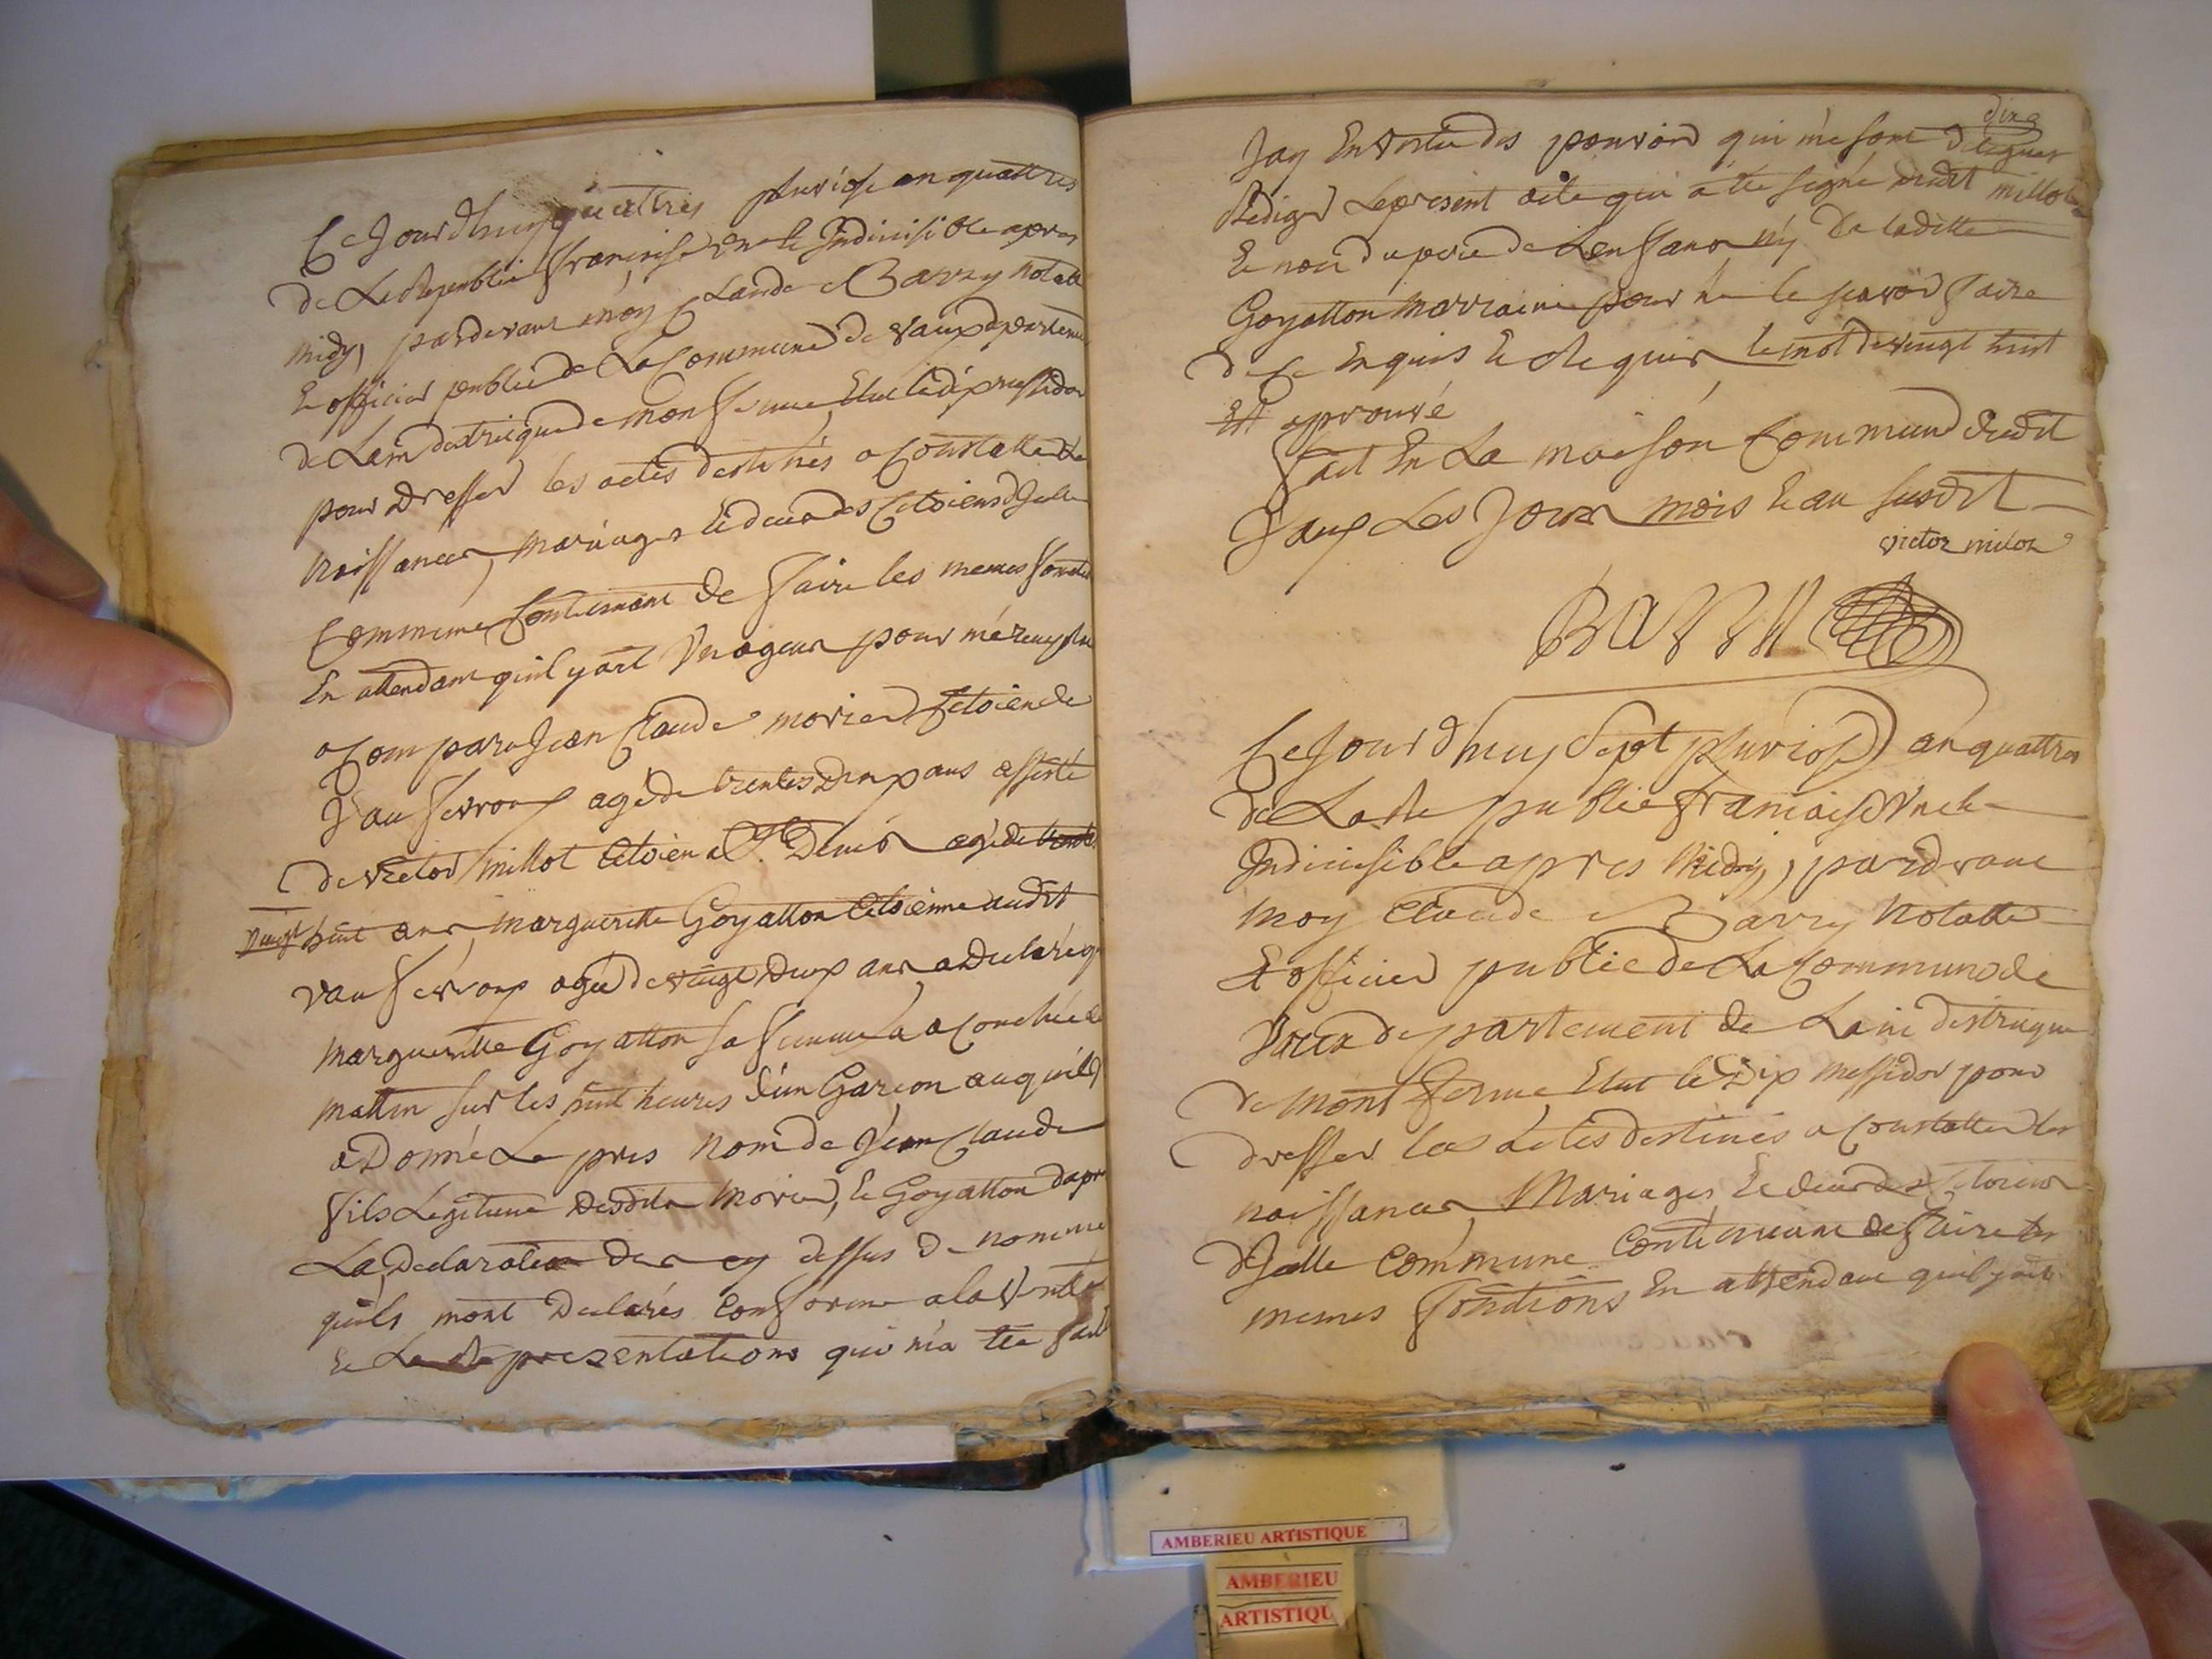 Ce Jourd'huy quattres pluviose an quattres
de La Republic francaise une Et Indivisible apres
midy, pardevant moy Claude Barry Notable
Et officier public de La Commune de vaux departement
de Lain districque de monferme Elue le dix messidor
pour Dresser les actes destinés a Constatter les
Naissances, mariages Et deces des Citoiens d'Jcelle
Commune Continuant de faire les memes fonctions
En attendant quil y ait
a Comparu Jean Claude morier Citoien de
Vaufevroux agé de trentes Deux ans assisté
de victor millot Citoien a St. Denis agé de
vingt huit ans margueritte Goyatton Citoienne dudit
vaufevroux agée de vingt Deux ans a Declaré q
marguerritte Goyatton sa femme a acouchée ce
mattin sur les huit heures d'un Garcon auquel Jl
a Donné Le pres Nom de Jean Claude
fils Legitime Desdits Morier, Et Goyatton Dapres
La Declaration Des cy dessus De nommé
quils mont Declarés Conforme a la verité
Et La Representations qui ma été fait
Jay En vertu des pouvoir qui me sont Delegues
Rediger Le present acte qui a été signé dudit millot
Et non du pere de Lenfant ny De laditte
Goyatton marraine pour ne le scavoir faire
de Ce Enquis Et Requis le mot de vingt huit
Est aprouvé
fait En La maison Commune dudit
Vaux Les Jour mois Et an susdit
victor milot
BARRY
Ce Jourd'huy Sept pluviose an quattres
de La Re publie francaise Une Et
Indivisible apres Midy, pardevant
moy Claude Barry Notable
Et officier public de La Commune de
Vaux departement de Lain districque
de Mont ferme Elue le Dix messidor pour
dresser les actes destinés a Constatter les
naissances Mariages Et deces des Citoiens
d'Jcelle Commune Continuant de faire les
memes fonctions En attendant quil y ait
AMBERIEU ARTISTIQUE
AMBERIEU
ARTISTIQU